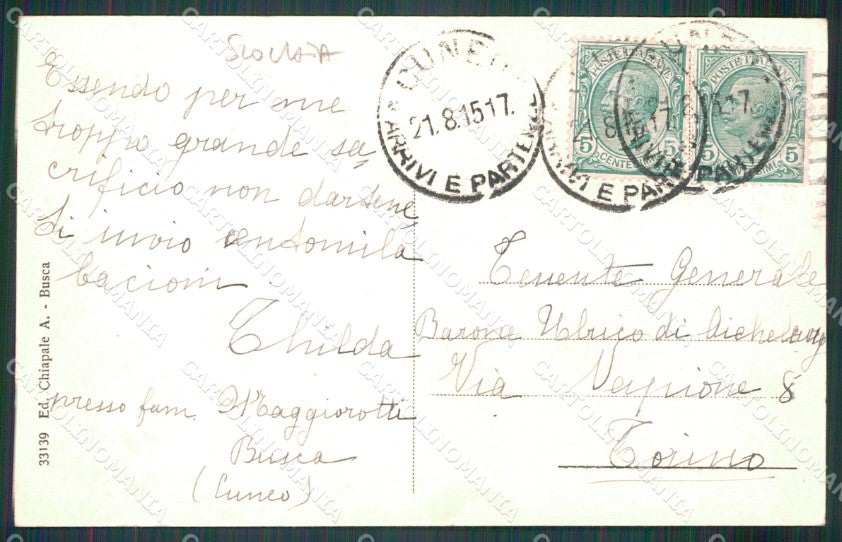 Essendo per me
troppo grande sa
crificio non dartene,
ti invio centomila
bacioni
Thilda
presso fam. Maggiorotti
Busca
(Cuneo)
33139 Ed. Chiapale A. - Busca
CUNEO
21.8.15 17.
ARRIVI E PARTENZE
POSTE ITALIANE
5 CENTESIMI 5
POSTE ITALIANE
5 5
Tenente Generale
Barone Ulrico di
Via 8
Torino
CARTOLINOMANIA